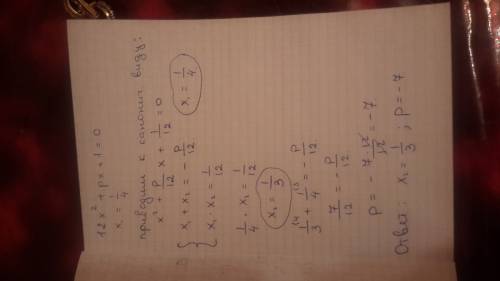 12x² + px + 1 = 0
x₁ = 1/4
приводим к каконич виду:
x² + p/12 x + 1/12 = 0
{ x₁ + x₂ = - p/12
x₁ · x₂ = 1/12
x₁ = 1/4
1/4 · x₂ = 1/12
x₂ = 1/3
1/3 + 1/4 = - p/12
7/12 = - p/12
p = - 7·12/12 = -7
Ответ: x₂ = 1/3 ; p = -7